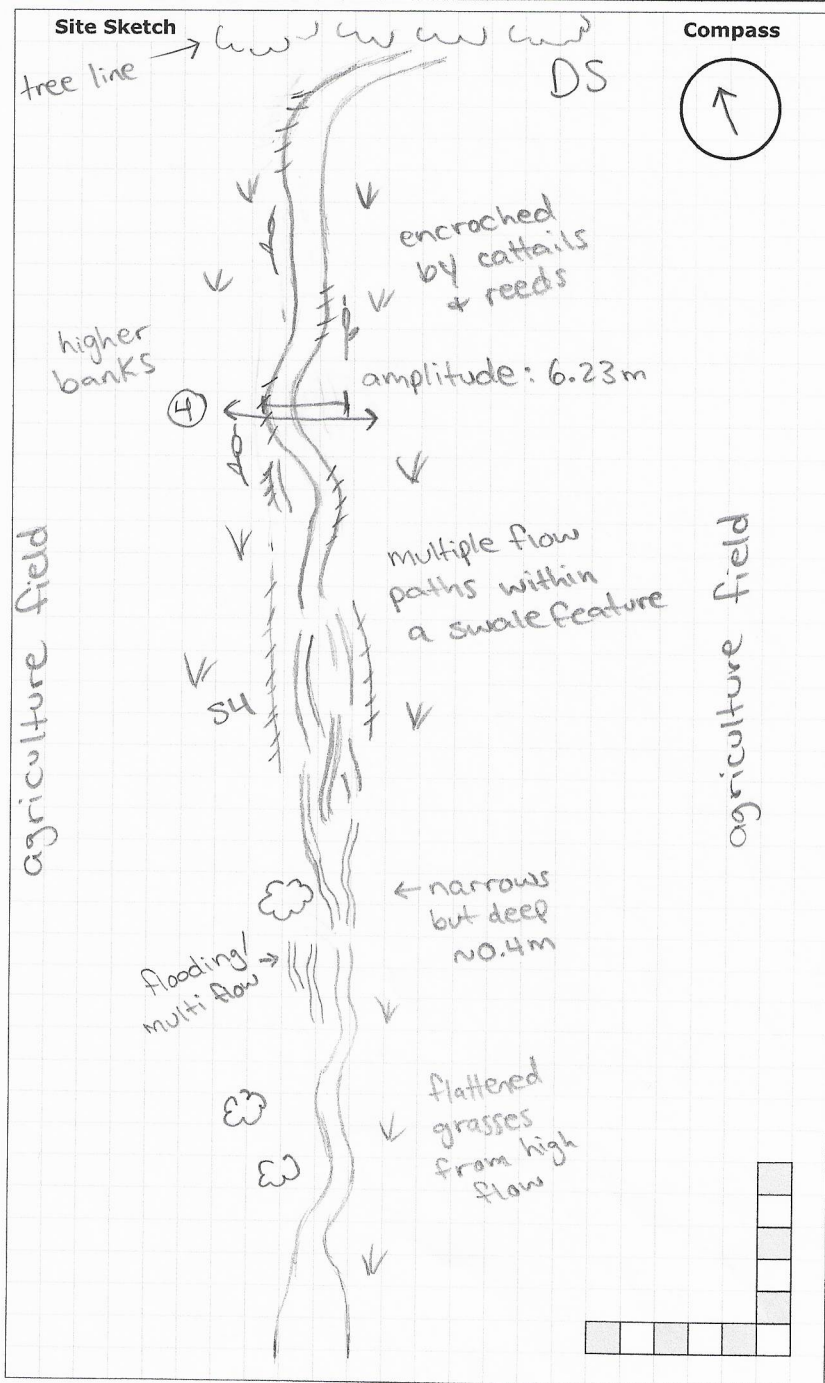 Site Sketch
Compass
tree line
DS
encroched
by cattails
+ reeds
higher
banks
amplitude: 6.23m
4
agriculture field
multiple flow
paths within
a swale feature
agriculture field
S4
←narrows
but deep
~0.4m
flooding/
multi flow
flattened
grasses
from high
flow